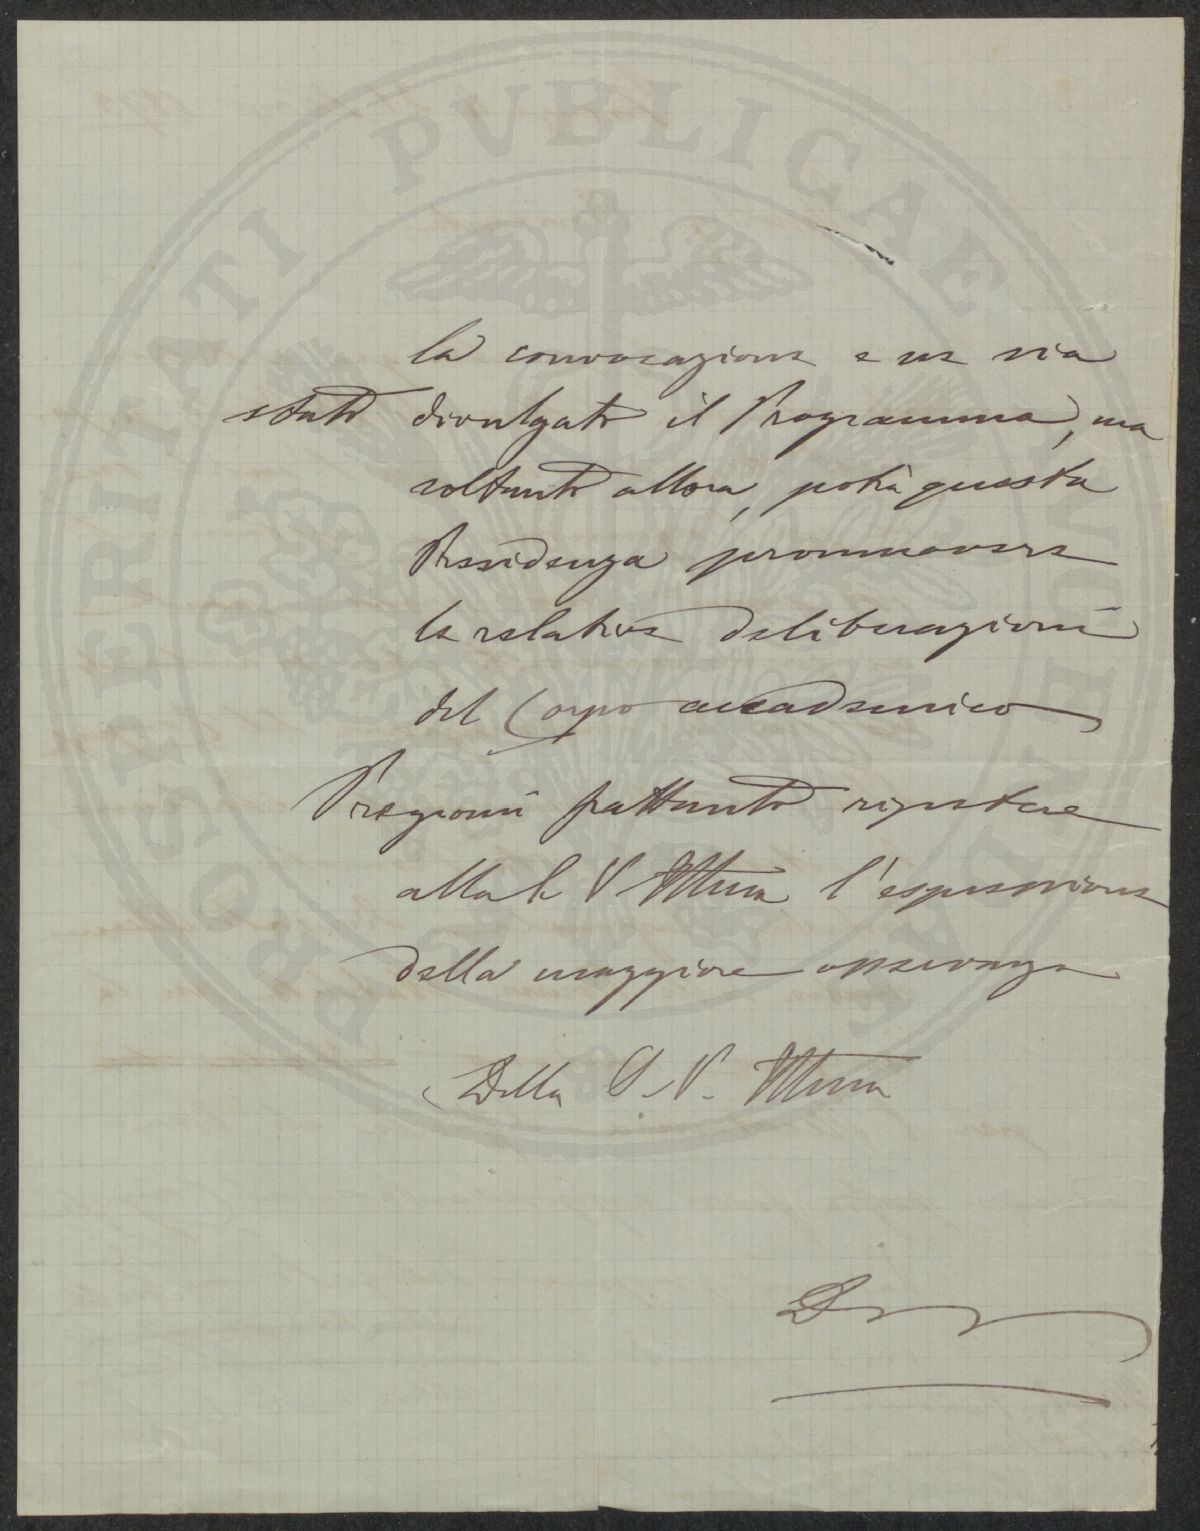 PROSPERITATI PVBLICAE AVGENDAE
la convocazione e ne sia
stato divulgato il Programma, ma
soltanto allora, potrà questa
Presidenza promuovere
le relative deliberazioni
del Corpo accademico
Pregiomi frattanto
alla V Illma l'espressione
della maggiore osservanza
Della S. V. Illma